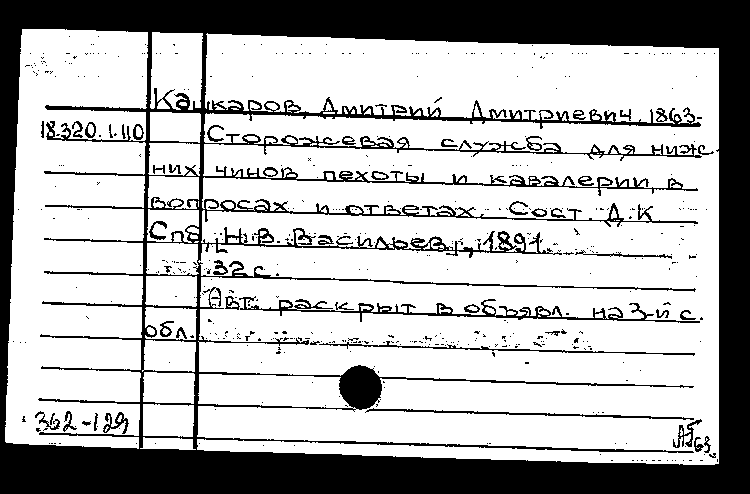 Кашкаров, Дмитрий Дмитриевич, 1863-
18.320.1.110 Сторожевая служба для ниж-
них чинов пехоты и кавалерии, в
вопросах и ответах. Сост. Д.К.
Спб., Н.В. Васильев, 1891.
32 с.
Авт. раскрыт в объявл. на 3-й с.
обл.
362-129